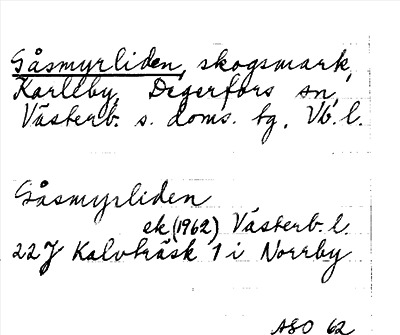 Gåsmyrliden, skogsmark,
Karlsby, Degerfors sn,
Västerb. s. doms. tg, Vb. l.
Gåsmyrliden
ek (1962) Västerb. l.
22J Kalvträsk 1 i Norrby
ASO 62